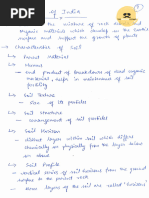 of India
the mixture of rock debris and
Organic materials which develop on the Earth's
surface and support the growth of plants
→ Characteristics of Soil
↳ Parent Material
↳ Humus
- end product of breakdown of dead organic
material, helps in maintenance of soil
fertility
↳ Soil Texture
- size of its particles
↳ Soil Structure
- arrangement of soil particles
↳ Soil Horizon
- distinct layer within soil which differs
chemically or physically from the layers
below or above
↳ Soil Profile
- vertical series of soil horizons from the ground
surface to the parent rock
layers of the soil are called 'horizons'